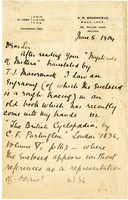 A. W. BRUNSKILL,
June 5. 1904
Dear Sir
After reading your "Mysteries
of Mithra" translated by
T. J. McCormack I saw an
engraving (of which the enclosed
is a rough tracing) in an
old book which has recently
come into my hands viz
"The British Cyclopædia, by
C. F. Partington" London 1836,
Volume V, p 163 — where
the enclosed appears without
references as a representation
of "Osiris"